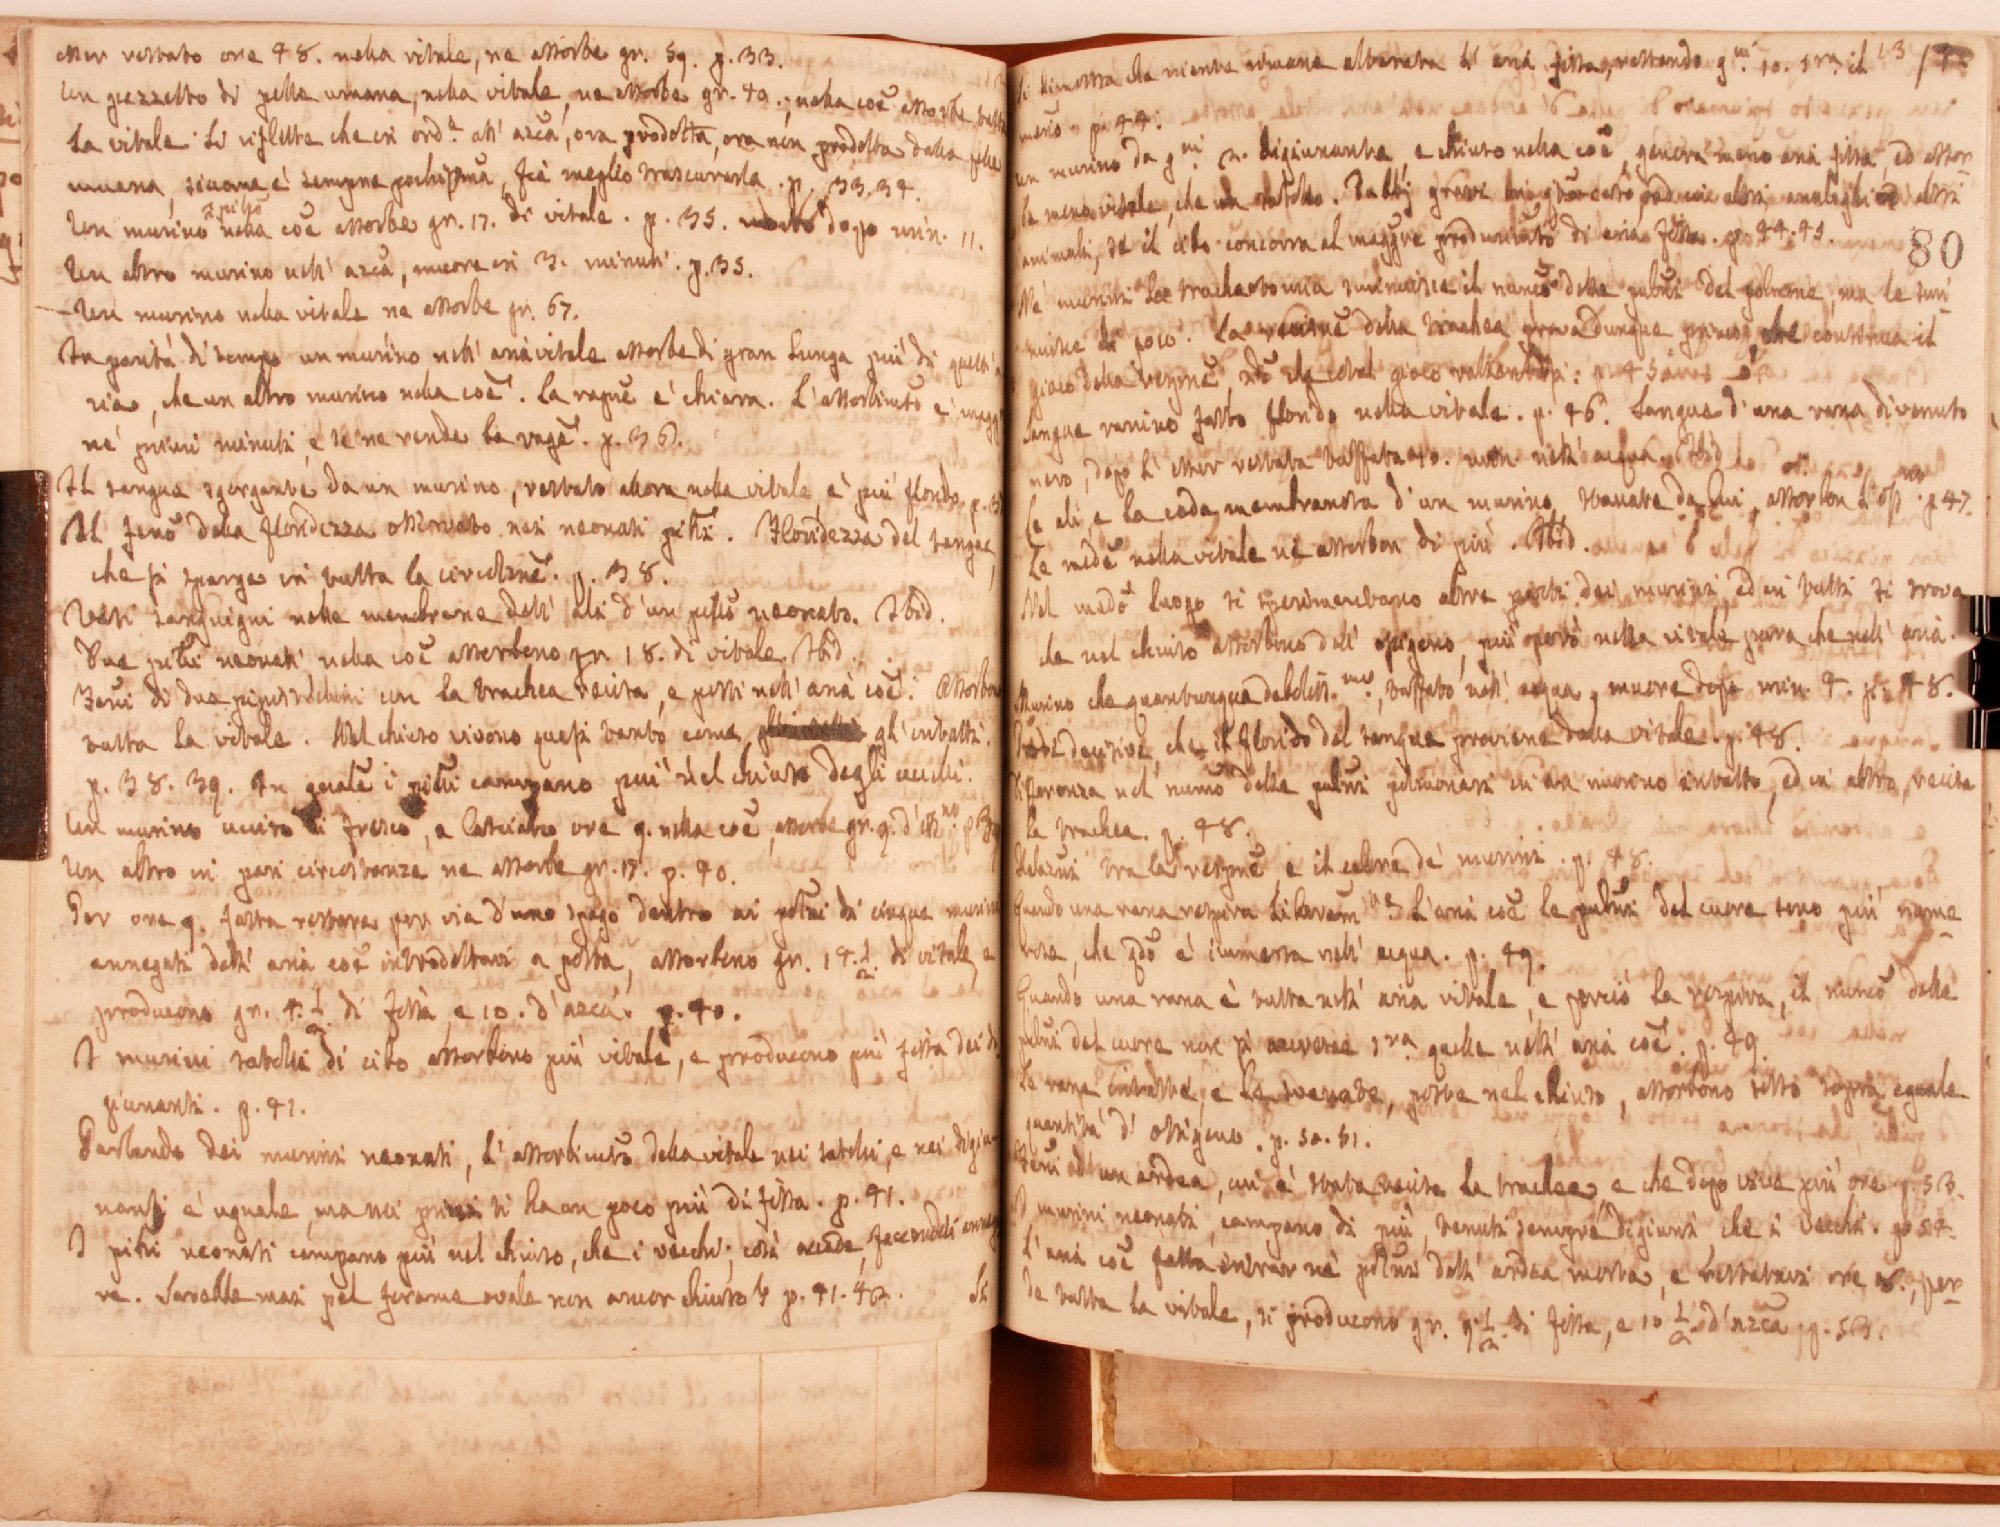 esser restato ore 48. nella vitale, ne assorbe gr. 59. p. 33.
Un pezzetto di pelle umana, nella vitale, ne assorbe gr. 40., nella coē assorbe tutta
la vitale. Si riflette che in ord.e all' azcā, ora prodotta, ora non prodotta dalla pelle
umana, siccome è sempre pochissmā, fia meglio trascurarla. p. 33. 34.
Un murino nella coē assorbe gr. 17. di vitale. p. 35. dopo min. 11.
Un altro murino nell' azcā, muore in 3. minuti. p. 35.
Un murino nella vitale ne assorbe gr. 67.
In parità di tempo un murino nell' aria vitale assorbe di gran lunga più di quest' a
ria, che un altro murino nella coē. La ragnē è chiara. L' assorbimto è magg
ne' primi minuti, e se ne rende la ragē. p. 36.
Il sangue sgorgante da un murino, restato allora nella vitale, è più florido. p.
Il fenō della floridezza osservato nei neonati pitsi. Floridezza del sangue,
che si sparge in tutta la circolznē. p. 38.
Vasi sanguigni nelle membrane dell' ali d'un neonato. Ibid.
Due neonati nella coē assorbono gr. 18. di vitale. Ibid.
di due pipistrelli con la trachea recisa, e posti nell' aria coē. Assorbon
tutta la vitale. Nel chiuso vivono questi tanto come gl' intatti.
p. 38. 39. In gnale i campano più nel chiuso degli vecchi.
Un murino ucciso di fresco, e lasciato ore 9. nella coē, assorbe gr. 9. d'
Un altro in pari circostanze ne assorbe gr. 17. p. 40.
Per ore 9. fatta restare per via d'uno spago dentro ai polmi di cinque murini
annegati dell' aria coē introdottavi a posta, assorbono gr. 14. 1/2 di vitale, e
producono gr. 4. 1/2 di fissa, e 10. d' azcā. p. 40.
I murini satolli di cibo assorbono più vitale, e producono più fissa dei di
giunanti. p. 41.
Parlando dei murini neonati, l' assorbimto della vitale nei satolli, e nei digiu-
nanti è uguale, ma nei primi si ha un poco più di fissa. p. 41.
I neonati campano più nel chiuso, che i vecchi; così accade, facendoli annega
re. Sarebbe mai pel forame ovale non ancor chiuso? p. 41. 42. Si
Si dimostra che niente rimane alterata l' aria fissa, restando g.ni 10. sra il 13
mercō p. 44.
Un murino da g.ni 2. digiunante, e chiuso nella coē, genera meno aria fissa, ed assor-
be meno vitale, che un satollo.
animali, se il cibo concorra al maggre producimto di aria fissa. p. 44. 45.
80
Ne' murini la tracheotomia sminuisce il numō delle pulsni del polmone, ma le smi-
nuisce di poco. La recisnē della trachea prova dunque che continua il
gioco della respnē, p. 45
Sangue ranino fatto florido nella vitale. p. 46. Sangue d' una rana divenuto
nero, dopo l' esser restata tuffata 40. min nell' acqua. Ibid
Le ali e la coda membranosa d' un murino, staccate da lui, assorbon l' p. 47.
Le medē nella vitale ne assorbon di più. Ibid.
Nel medō luogo si sperimentano altre parti dei murini, ed in tutti si trova
che nel chiuso assorbono dell' ossigeno, più però nella vitale pura che nell' aria.
Murino che quantunque tuffato nell' acqua, muore dopo min. 4. p. 48.
decisiva, che il florido del sangue proviene dalla vitale. p. 48.
Differenza nel numō delle pulsni polmonari in un murino intatto, ed in altro, recisa
la trachea. p. 48.
Relazni tra la respnē, e il calore de' murini. p. 48.
Quando una rana respira liberam.te l' aria coē le pulsni del cuore sono più nume-
rose, che qdō è immersa nell' acqua. p. 49.
Quando una rana è tutta nell' aria vitale, e perciò la respira, il numō delle
pulsni del cuore non si accresce sra quelle nell' aria coē. p. 49
Le rane intatte, e le svenate, poste nel chiuso, assorbono sotto sopra eguale
quantità d' ossigeno. p. 50. 51.
ad un ardea, cui è stata recisa la trachea, e che dopo vive più ore p. 53.
I murini neonati, campano di più, tenuti sempre digiuni che i vecchi. p. 54.
L' aria coē fatta entrar ne' polmni dell' ardea morta, e restatavi ore 8., per-
de tutta la vitale, si producono gr. 9. 1/2 di fissa, e 10 1/2 d' azcā p. 53.